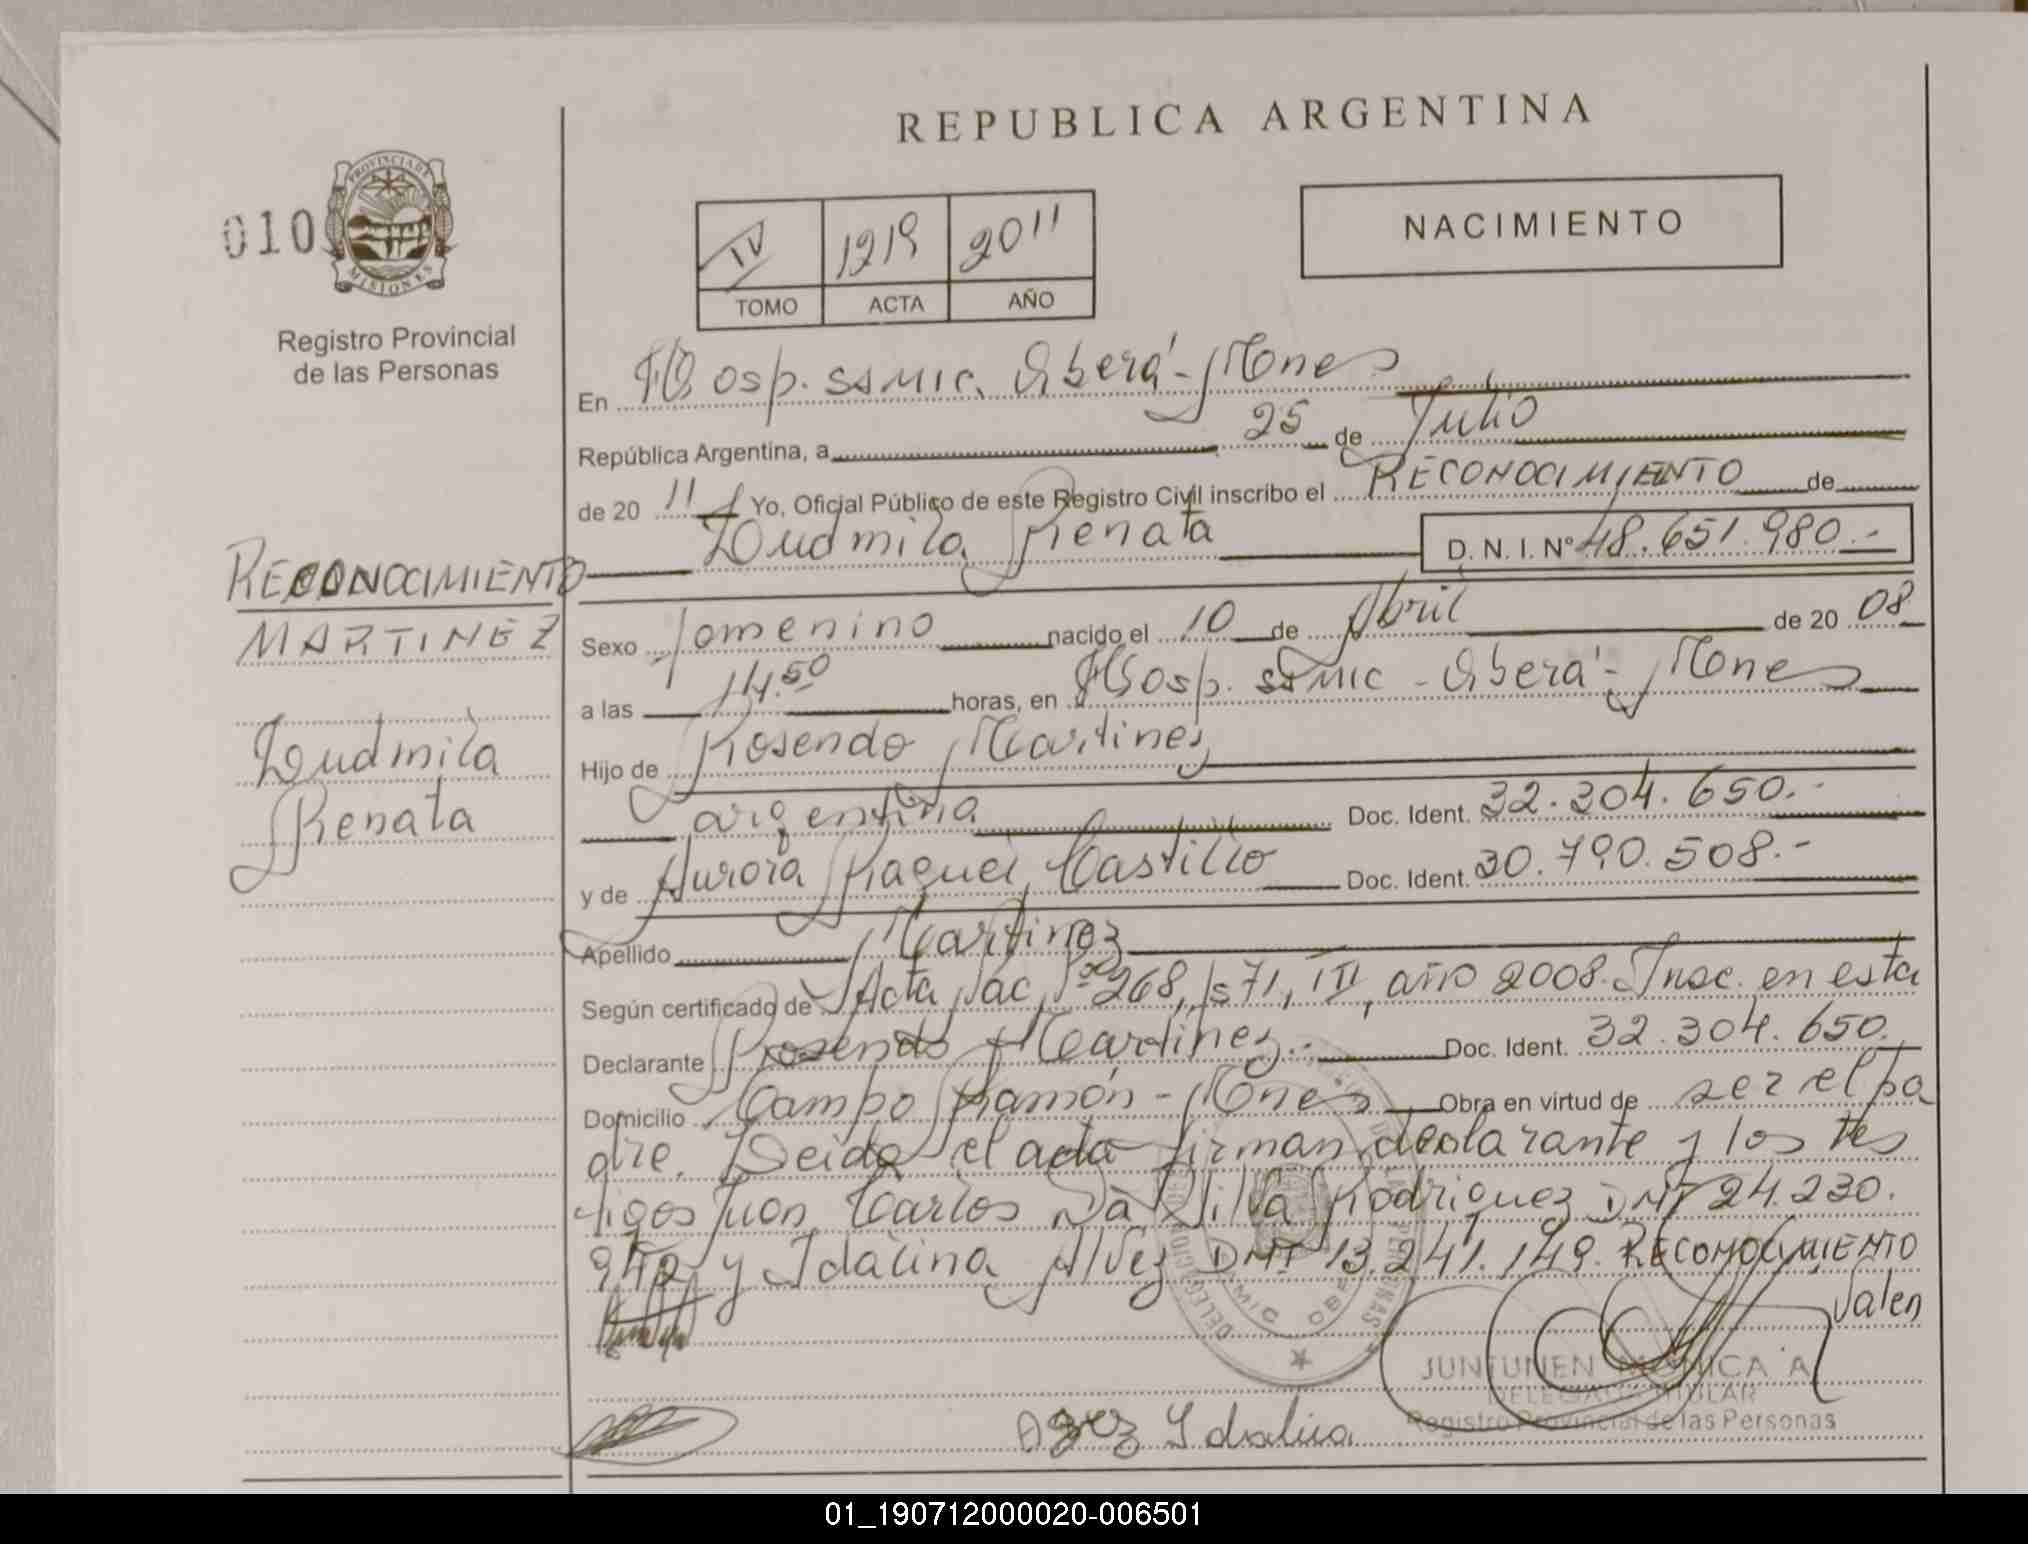 REPUBLICA ARGENTINA
010
PROVINCIA DE MISIONES
Registro Provincial
de las Personas
IV 1219 2011
TOMO ACTA AÑO
NACIMIENTO
En Hosp. SAMIC. Oberá - Mones
República Argentina, a 25 de Julio
de 20 11 Yo, Oficial Público de este Registro Civil inscribo el RECONOCIMIENTO de
Ludmila Renata D. N. I. Nº 48.651.980.-
RECONOCIMIENTO
MARTINEZ
Ludmila
Renata
Sexo femenino nacido el 10 de Abril de 20 08
a las 14.50 horas, en Hosp. SAMIC - Oberá - Mones
Hijo de Rosendo Martinez
argentina Doc. Ident. 32.304.650.-
y de Aurora Raquel Castillo Doc. Ident. 30.790.508.-
Apellido Martinez
Según certificado de Acta Nac Nº 268, fs 71, III, año 2008. Insc. en esta
Declarante Rosendo Martinez.- Doc. Ident. 32.304.650.
Domicilio Campo Ramón - Mones Obra en virtud de ser el pa
dre. Leida el acta firman declarante y los tes
tigos Juan Carlos Da Silva Rodriguez DNI 24.230.
y Idalina Alvez DNI 13.241.149. RECONOCIMIENTO
Valen
JUNTUNEN MONICA A
DELEGADA TITULAR
Registro Provincial de las Personas
Idalina
01_190712000020-006501